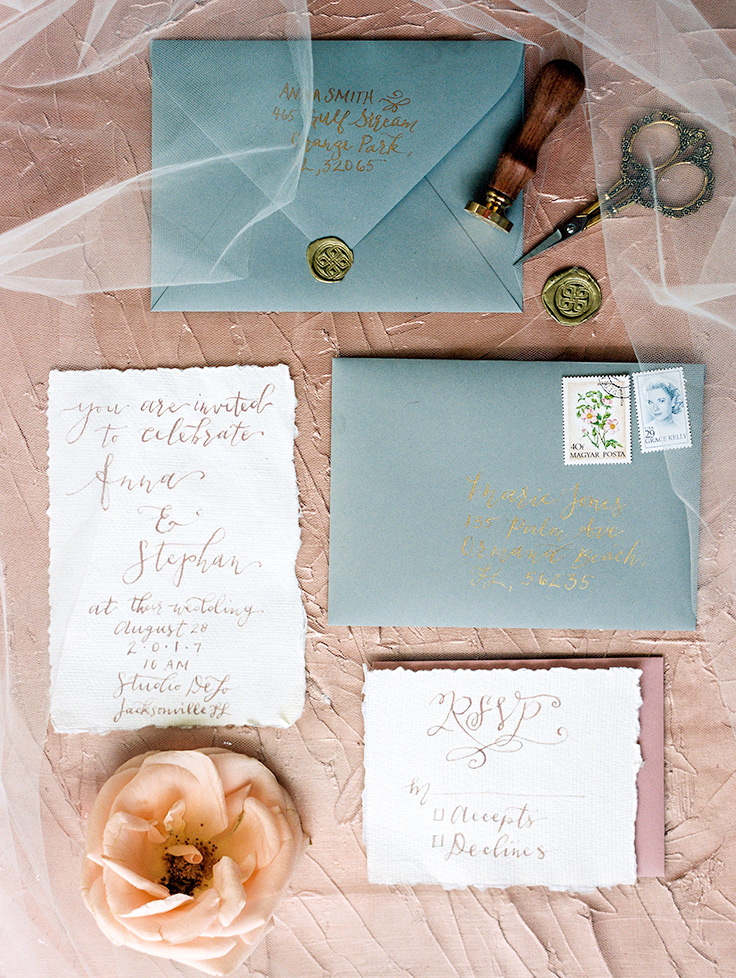 ANNA SMITH
465 Gulf Stream
Orange Park,
FL, 32065
40f
MAGYAR POSTA
USA
29
GRACE KELLY
Marie Jones
Palm Ave
Beach,
FL, 56235
you are invited
to celebrate
Anna
&
Stephan
at their wedding
August 28
2·0·1·7
10 AM
Studio DeLo
Jacksonville FL
RSVP
M
Accepts
Declines